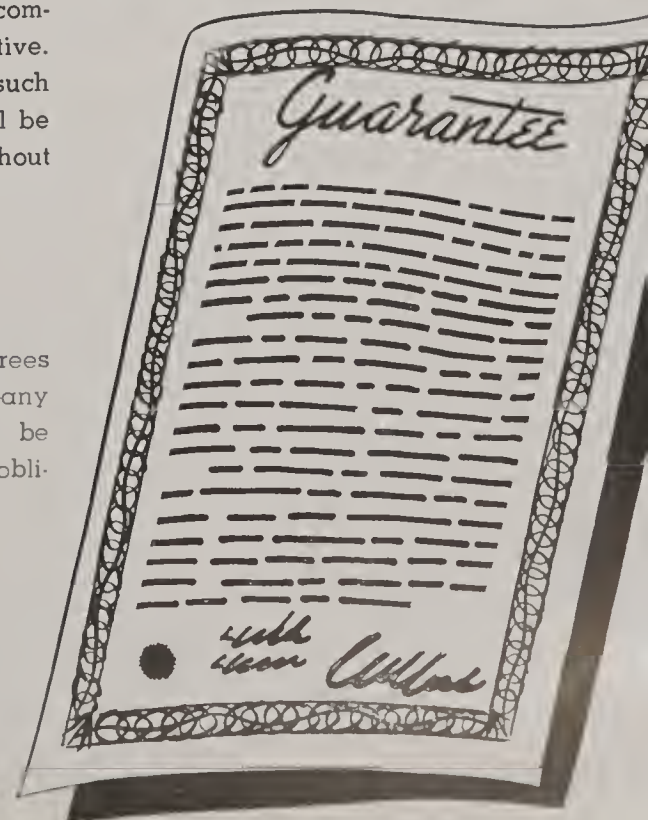 com-
tive.
such
l be
hout
rees
any
be
obli-
Guarantee